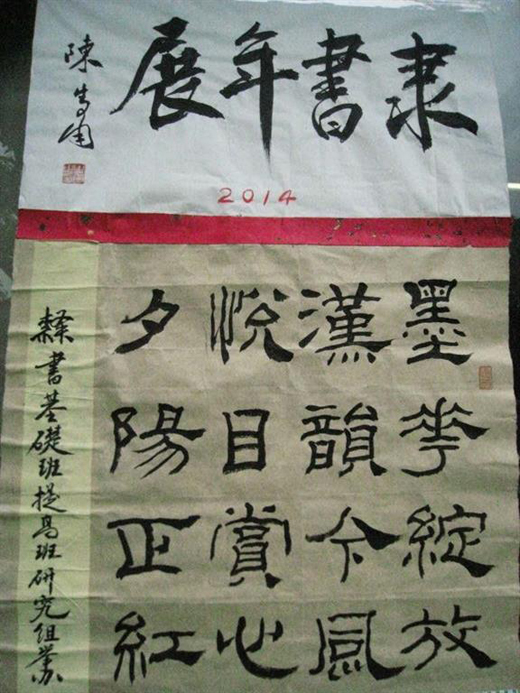 隶書年展
陳
2014
墨花綻放
漢韻今風
悅目賞心
夕陽正紅
隸書基礎班提高班研究組